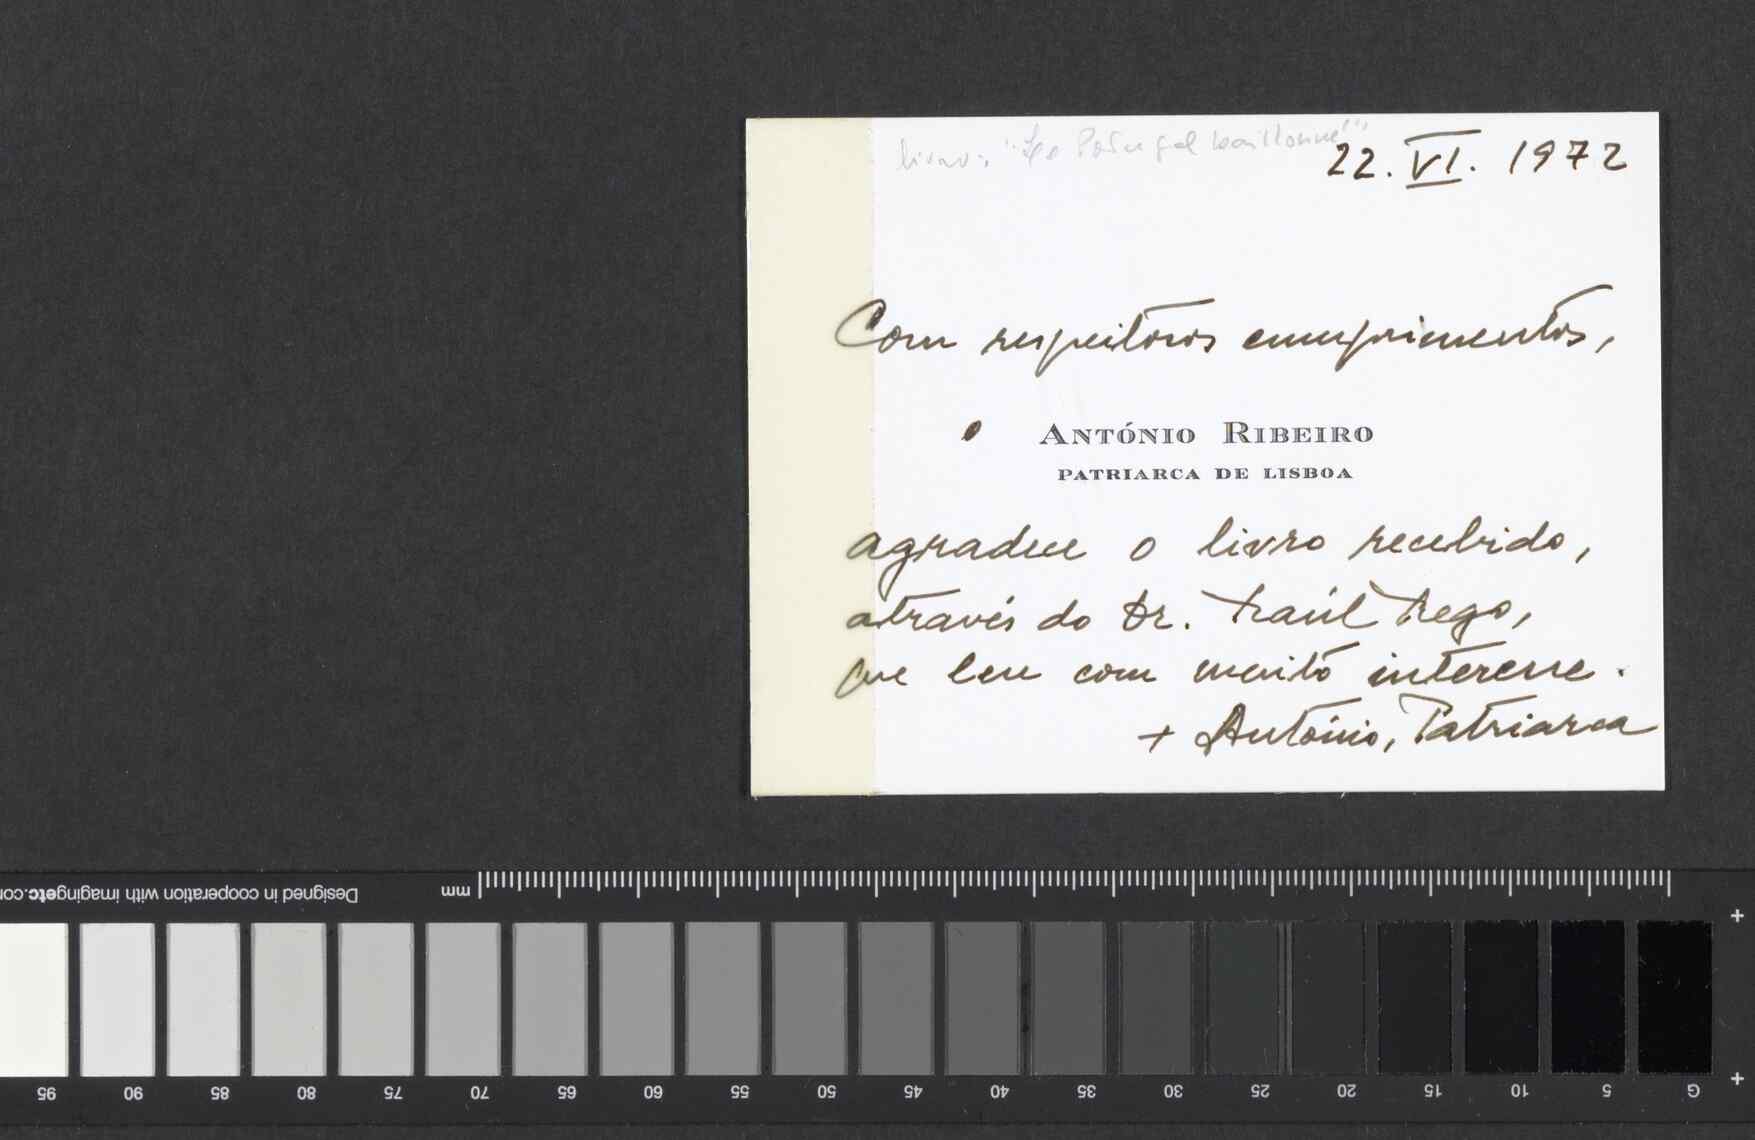 livro: "Le Portugal baillonné"
22. VI. 1972
Com respeitosos cumprimentos,
o ANTÓNIO RIBEIRO
PATRIARCA DE LISBOA
agradece o livro recebido,
através do Dr. Raúl Rego,
que leu com muito interesse.
+ António, Patriarca
Designed in cooperation with imagingetc.co
mm
95 90 85 80 75 70 65 60 55 50 45 40 35 30 25 20 15 10 5 G